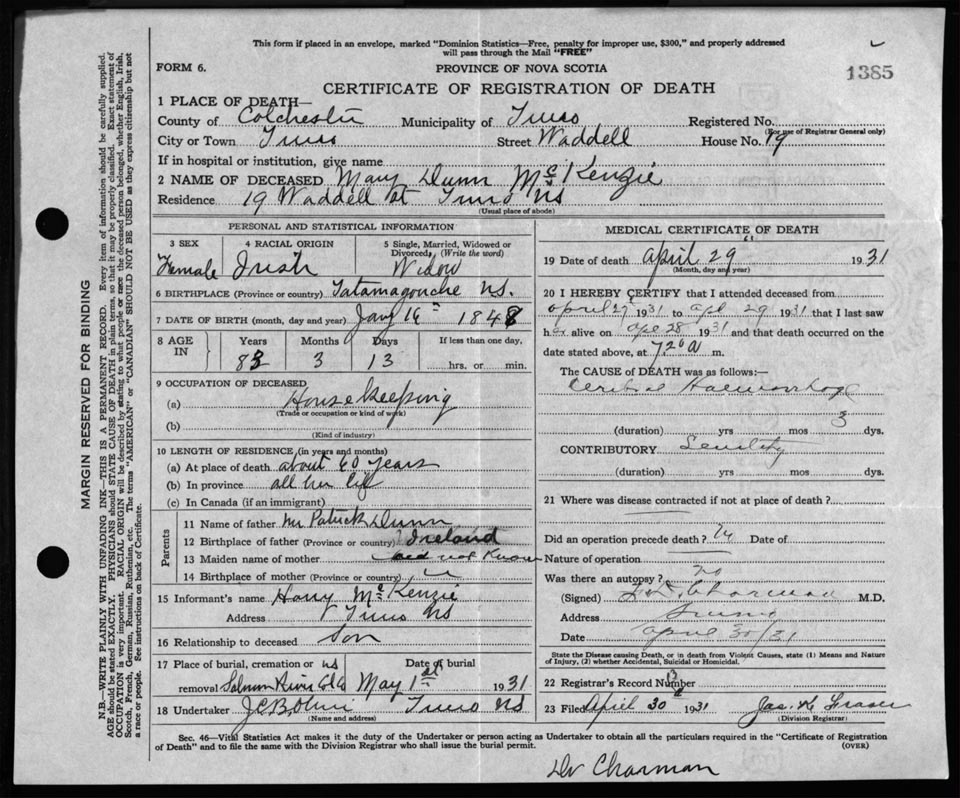 This form if placed in an envelope, marked "Dominion Statistics—Free, penalty for improper use, $300," and properly addressed
will pass through the Mail "FREE"
FORM 6.
PROVINCE OF NOVA SCOTIA
1385
CERTIFICATE OF REGISTRATION OF DEATH
1 PLACE OF DEATH—
County of Colchester Municipality of Truro Registered No.
(For use of Registrar General only)
City or Town Truro Street Waddell House No. 19
If in hospital or institution, give name
2 NAME OF DECEASED Mary Dunn McKenzie
Residence 19 Waddell St Truro NS
(Usual place of abode)
PERSONAL AND STATISTICAL INFORMATION
3 SEX 4 RACIAL ORIGIN 5 Single, Married, Widowed or Divorced, (Write the word)
Female Irish Widow
6 BIRTHPLACE (Province or country) Tatamagouche NS.
7 DATE OF BIRTH (month, day and year) Jany 16 1848
8 AGE IN Years Months Days If less than one day,
83 3 13 hrs. or min.
9 OCCUPATION OF DECEASED
(a) House Keeping
(Trade or occupation or kind of work)
(b)
(Kind of industry)
10 LENGTH OF RESIDENCE (in years and months)
(a) At place of death about 60 years
(b) In province all her life
(c) In Canada (if an immigrant)
Parents
11 Name of father Mr Patrick Dunn
12 Birthplace of father (Province or country) Ireland
13 Maiden name of mother did not Know
14 Birthplace of mother (Province or country)
15 Informant's name Harry McKenzie
Address Truro NS
16 Relationship to deceased Son
17 Place of burial, cremation or removal Date of burial
NS
Salmon River Col Co May 1st 1931
18 Undertaker Truro NS
(Name and address)
MEDICAL CERTIFICATE OF DEATH
19 Date of death April 29 1931
(Month, day and year)
20 I HEREBY CERTIFY that I attended deceased from
April 27 1931 to Apl 29 1931 that I last saw
her alive on Apl 28 1931 and that death occurred on the
date stated above, at 7.20 A m.
The CAUSE of DEATH was as follows:—
Cerebral Haemorrhage
3
(duration) yrs mos dys.
CONTRIBUTORY Senility
(duration) yrs mos dys.
21 Where was disease contracted if not at place of death?
Did an operation precede death? Date of
Nature of operation
Was there an autopsy? no
(Signed) Charman M.D.
Address Truro
Date April 30/31
State the Disease causing Death, or in death from Violent Causes, state (1) Means and Nature
of Injury, (2) whether Accidental, Suicidal or Homicidal.
22 Registrar's Record Number
23 Filed April 30 1931 Jas. K Fraser
(Division Registrar)
Sec. 46—Vital Statistics Act makes it the duty of the Undertaker or person acting as Undertaker to obtain all the particulars required in the "Certificate of Registration
of Death" and to file the same with the Division Registrar who shall issue the burial permit.
(OVER)
Dr Charman
MARGIN RESERVED FOR BINDING
N.B.—WRITE PLAINLY WITH UNFADING INK—THIS IS A PERMANENT RECORD. Every item of information should be carefully supplied.
AGE should be stated EXACTLY. PHYSICIANS should STATE CAUSE OF DEATH in plain terms, so that it may be properly classified. Exact statement of
OCCUPATION is very important. RACIAL ORIGIN will be described by stating to what people or race the deceased person belonged, whether English, Irish,
Scotch, French, German, Russian, Ruthenian, etc. The terms "AMERICAN" or "CANADIAN" SHOULD NOT BE USED as they express citizenship but not
a race or people. See instructions on back of Certificate.